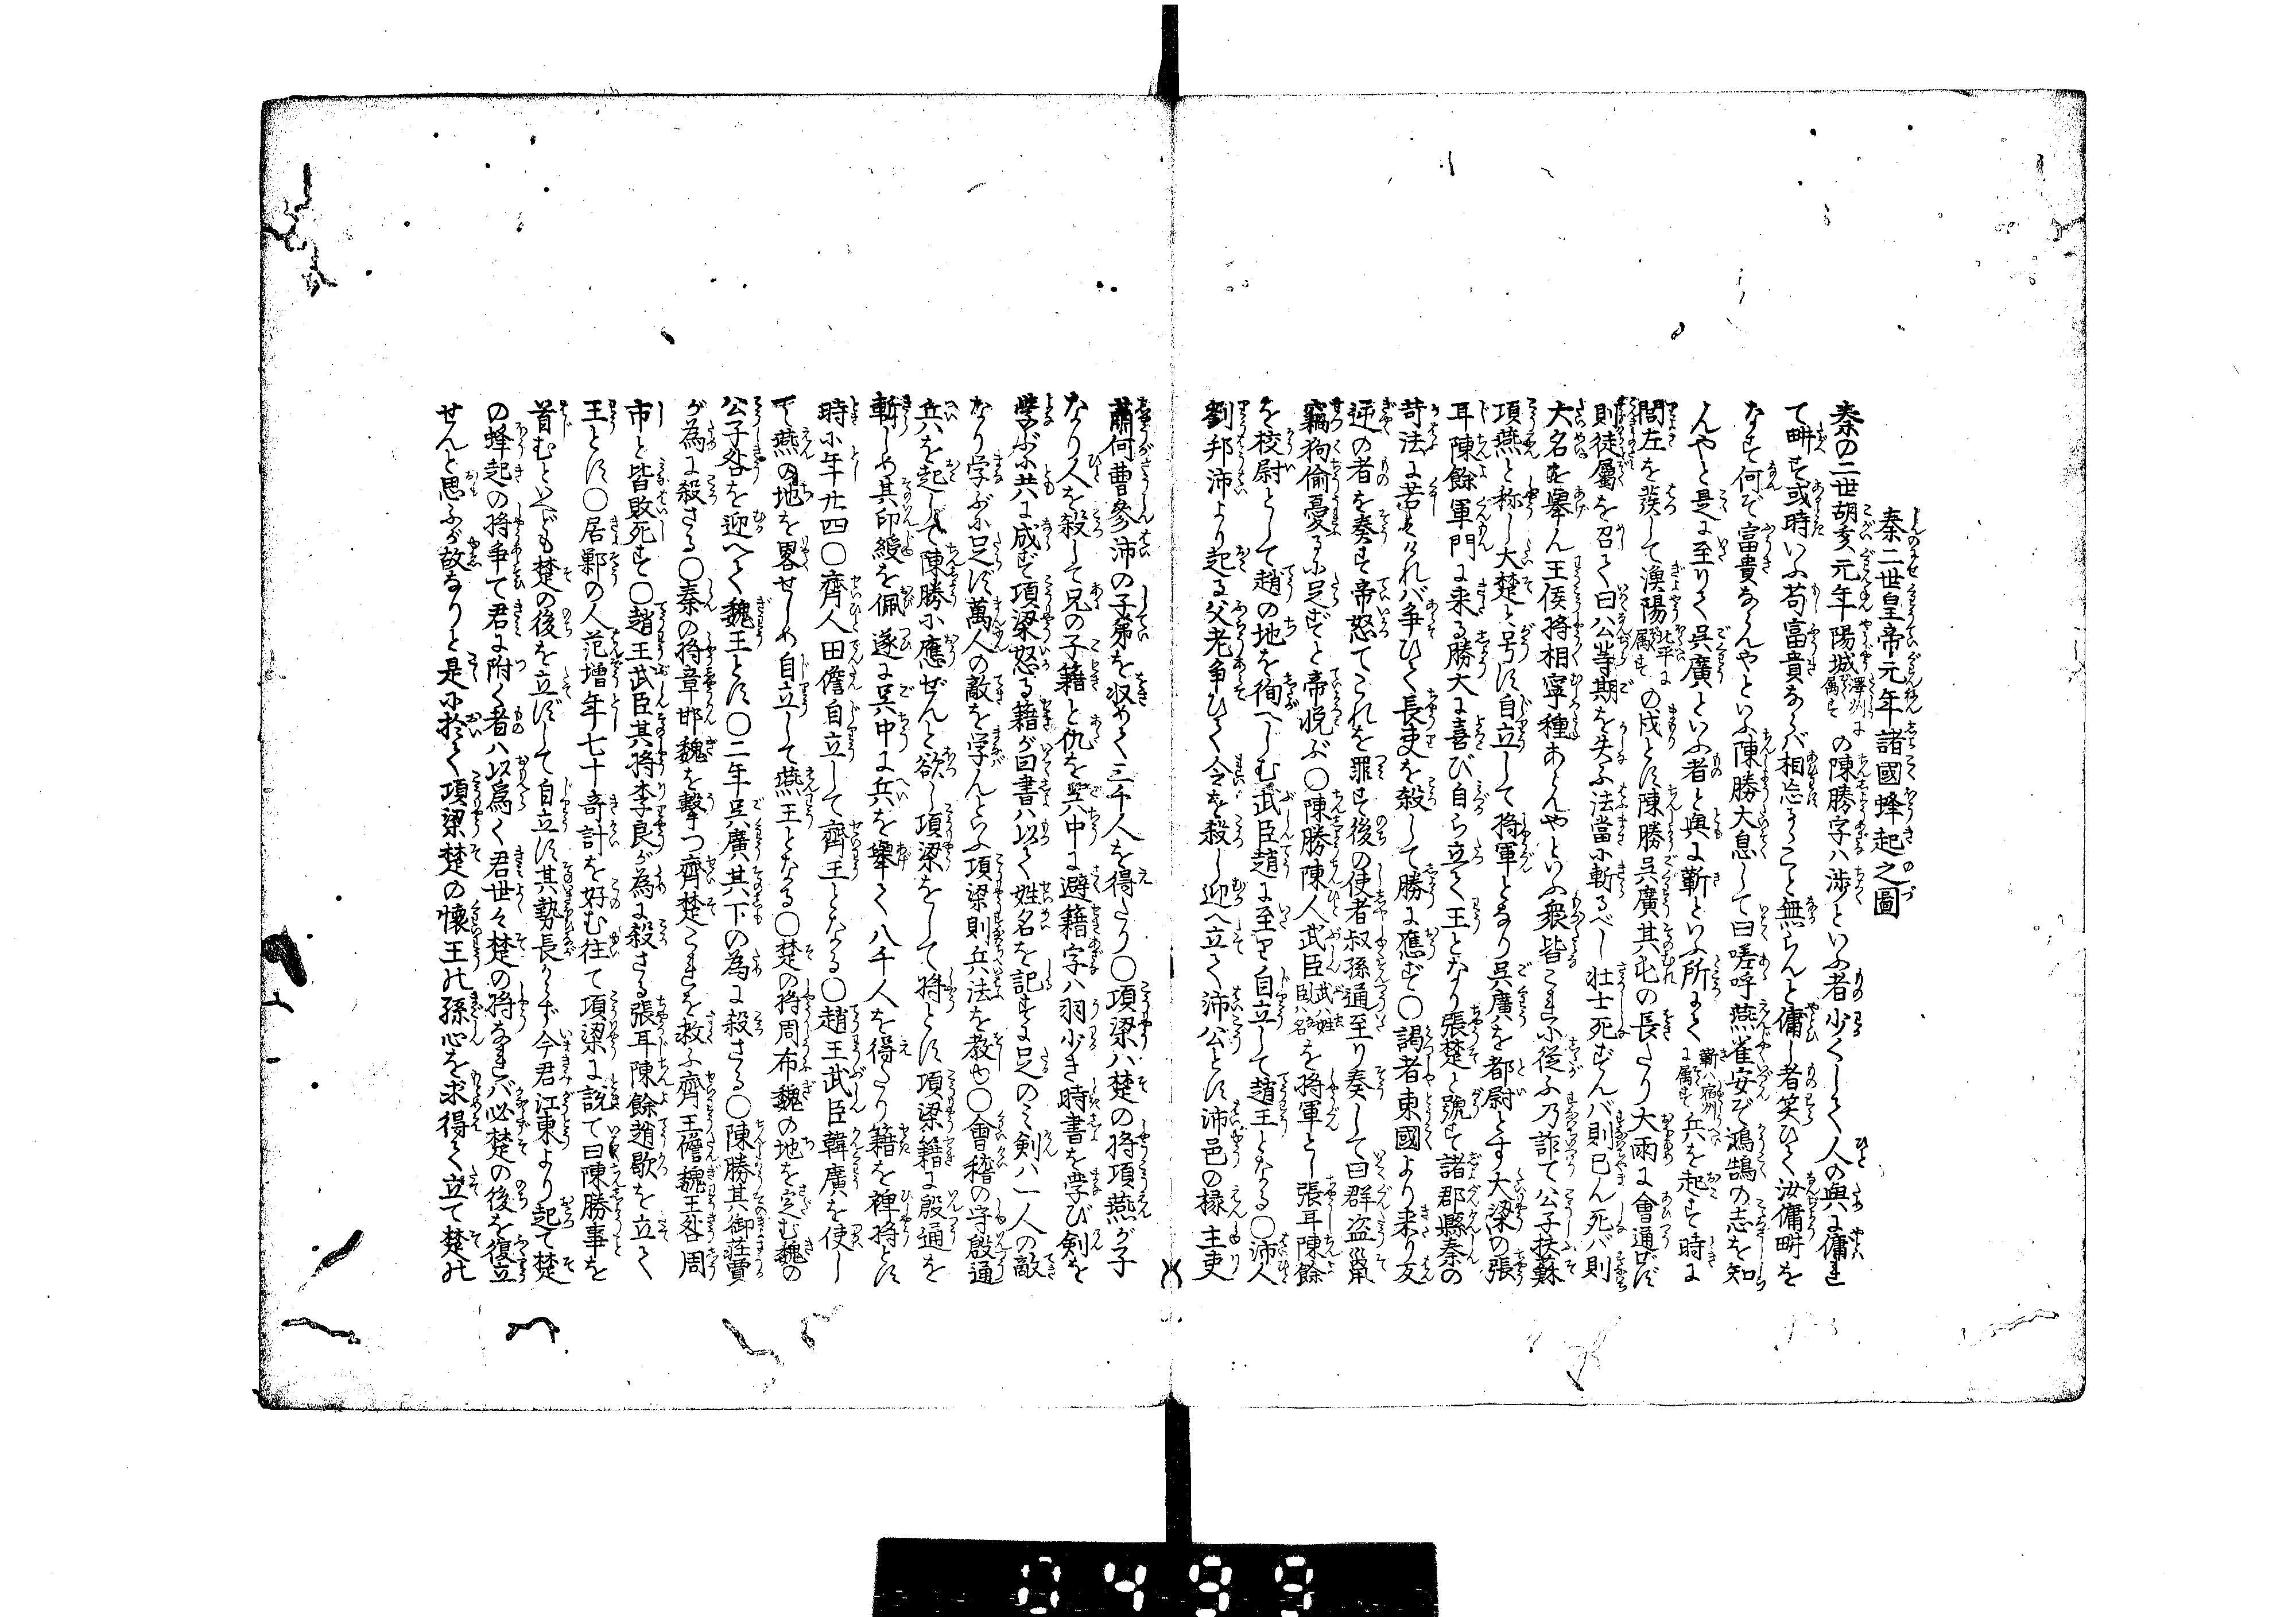 秦二世皇帝元年諸國蜂起之圖
秦の二世胡亥元年陽城澤州に属すの陳勝字ハ渉といふ者少くして人の與に傭れ
て畊す或時いふ苟富貴ならバ相忘るゝこと無らんと傭し者笑ひて汝傭畊を
なす何ぞ富貴ならんやといふ陳勝大息して曰嗟呼燕雀安ぞ鴻鵠の志を知
んやと是に至りて呉廣といふ者と與に蘄といふ所にて蘄ハ宿州に属す兵を起す時に
閭左を発して漁陽北平に属すの戍とす陳勝呉廣其屯の長たり大雨に會通ぜず
則徒属を召て曰公等期を失ふ法當に斬るべし壮士死せずんバ則已ん死バ則
大名を挙ん王侯将相寧種あらんやといふ衆皆これに従ふ乃詐て公子扶蘇
項燕と称し大楚と号す自立して将軍となり呉廣を都尉とす大梁の張
耳陳餘軍門に来る勝大に喜び自ら立て王となり張楚と號す諸郡縣秦の
苛法に苦しければ争ひて長吏を殺して勝に應ず〇謁者東國より来り反
逆の者を奏す帝怒てこれを罪す後の使者叔孫通至り奏して曰群盗鼠
竊狗偷憂るに足ずと帝悦ぶ〇陳勝陳人武臣武ハ姓臣ハ名を将軍とし張耳陳餘
を校尉として趙の地を徇へしむ武臣趙に至り自立して趙王となる〇沛人
劉邦沛より起る父老争ひて令を殺し迎へ立て沛公とす沛邑の掾主吏
蕭何曹參沛の子弟を収めて三千人を得たり〇項梁ハ楚の将項燕が子
なり人を殺して兄の子籍と仇を呉中に避籍字ハ羽少き時書を学び剣を
学ぶに共に成ず項梁怒る籍が曰書ハ以て姓名を記すに足のミ剣ハ一人の敵
なり学ぶに足ず萬人の敵を学んといふ項梁則兵法を教ゆ〇會稽の守殷通
兵を起して陳勝に應ぜんと欲し項梁をして将とす項梁籍に殷通を
斬しめ其印綬を佩遂に呉中に兵を挙て八千人を得たり籍を裨将とす
時に年廿四〇齊人田儋自立して齊王となる〇趙王武臣韓廣を使し
て燕の地を畧せしめ自立して燕王となる〇楚の将周市魏の地を定む魏の
公子咎を迎へて魏王とす〇二年呉廣其下の為に殺さる〇陳勝其御荘賈
が為に殺さる〇秦の将章邯魏を撃つ齊楚これを救ふ齊王儋魏王咎周
市と皆敗死す〇趙王武臣其将李良が為に殺さる張耳陳餘趙歇を立て
王とす〇居鄛の人范増年七十奇計を好む往て項梁に説て曰陳勝事を
首むといへども楚の後を立ずして自立す其勢長からず今君江東より起て楚
の蜂起の将争て君に附く者ハ以為く君世々楚の将なれバ必楚の後を復立
せんと思ふが故なりと是に於て項梁楚の懐王の孫心を求得て立て楚の
0499